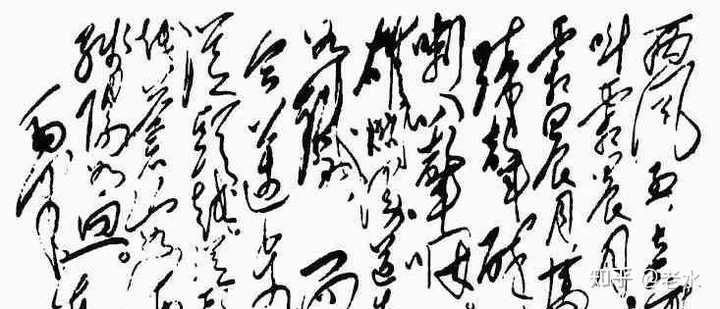 西风烈，长
叫霜晨月。
霜晨月，马
蹄声碎
喇叭声咽
雄关漫道真
如铁，而
今迈步
从头越。从
越苍山如海
残阳如血。
知乎 @老水